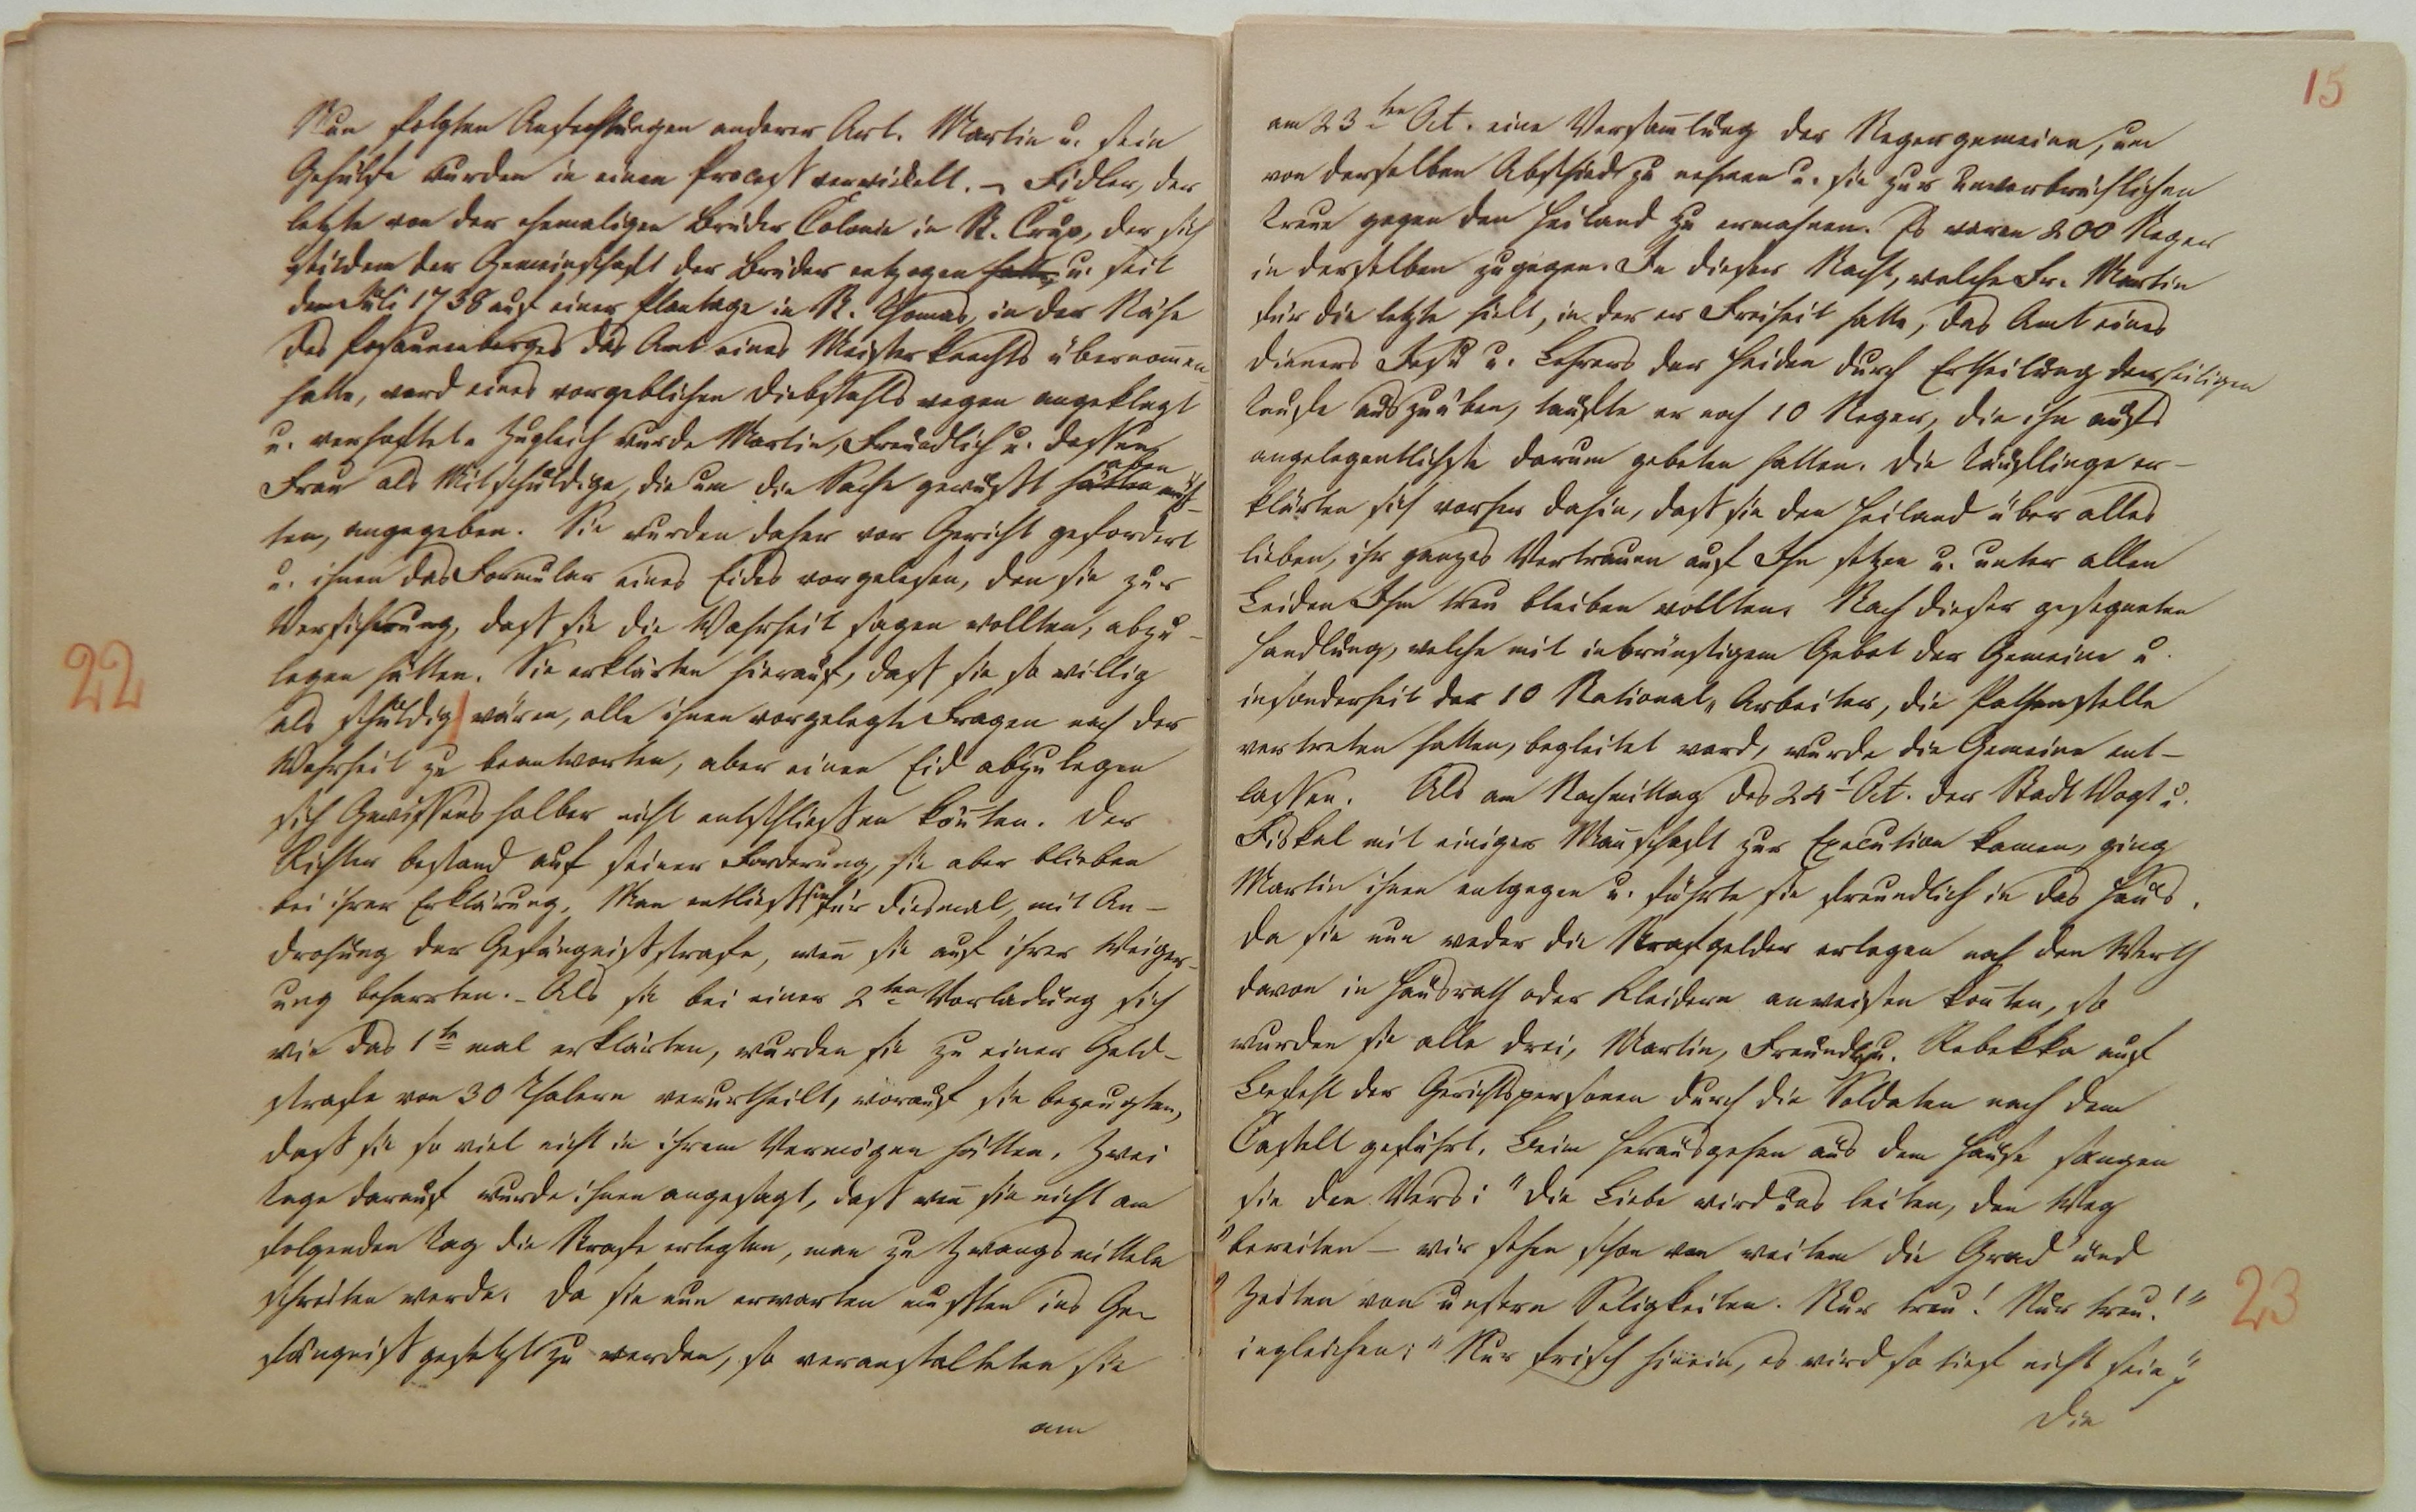 Nun folgten Anfechtungen anderer Art. Martin u. sein
Gehülfe wurden in einen Proceß verwickelt. – Fidler, der
letzte von der ehemaligen Brüder Colonie in St. Crux, der sich
seitdem der Gemeinschaft der Brüder entzogen hatte u. seit
dem Juli 1738 auf einer Plantage in St. Thomas, in der Nähe
des Posaunenberges das Amt eines Meisterknechts übernom̅en
hatte, ward eines vorgeblichen Diebstahls wegen angeklagt
u. verhaftet. Zugleich wurde Martin, Freundlich u. dessen
Frau als Mitschuldige, die um die Sache gewußt haben müß-
ten, angegeben. Sie wurden daher vor Gericht gefordert
u. ihnen das Formular eines Eides vorgelesen, den sie zur
Versicherung, daß sie die Wahrheit sagen wollten, abzu-
legen hätten. Sie erklärten hierauf, daß sie so willig
als schuldig wären, alle ihnen vorgelegte Fragen nach der
Wahrheit zu beantworten, aber einen Eid abzulegen
sich Gewissens halber nicht entschliessen kön̅ten. Der
Richter bestand auf seiner Forderung, sie aber blieben
bei ihrer Erklärung. Man entließ sie für diesmal, mit An-
drohung der Gefängnißstrafe, wen̅ sie auf ihrer Weiger-
ung beharrten. – Als sie bei einer 2ten Vorladung sich
wie das 1te mal erklärten, wurden sie zu einer Geld-
strafe von 30 Thalern verurtheilt, worauf sie bezeugten,
daß sie so viel nicht in ihrem Vermögen hätten. Zwei
Tage darauf wurde ihnen angesagt, daß wen̅ sie nicht am
folgenden Tag die Strafe erlegten, man zu Zwangsmitteln
schreiten werde. Da sie nun erwarten mußten ins Ge-
fängniß gesetzt zu werden, so veranstalteten sie
am
22
15
am 23ten Oct. eine Versam̅lung der Negergemeine, um
von derselben Abschied zu nehmen u. sie zur unverbrüchlichen
Treue gegen den Heiland zu ermahnen. Es waren 200 Neger
in derselben zugegen. In dieser Nacht, welche Fr. Martin
für die letzte hielt, in der er Freiheit hatte, das Amt eines
Dieners Jesu u. Lehrers der Heiden durch Ertheilung der heiligen
Taufe auszuüben, taufte er noch 10 Neger, die ihn aufs
angelegentlichste darum gebeten hatten. Die Täuflinge er-
klärten sich vorher dahin, daß sie den Heiland über alles
lieben, ihr ganzes Vertrauen auf Ihn setzen u. unter allen
Leiden Ihm treu bleiben wollten. Nach dieser gesegneten
Handlung, welche mit inbrünstigem Gebet der Gemeine u.
insonderheit der 10 National-Arbeiter, die Pathenstelle
vertreten hatten, begleitet ward, wurde die Gemeine ent-
lassen. Als am Nachmittag des 24t Oct. der Stadt Vogt u.
Fiskal mit einiger Man̅schaft zur Execution kamen, ging
Martin ihnen entgegen u. führte sie freundlich in das Haus.
Da sie nun weder die Strafgelder erlegen noch den Werth
davon in Hausrath oder Kleidern anweisen kon̅ten, so
wurden sie alle drei, Martin, Freundl. u. Rebekka auf
Befehl der Gerichtspersonen durch die Soldaten nach dem
Castell geführt. Beim Herausgehen aus dem Hause sangen
sie den Vers: "Die Liebe wird uns leiten, den Weg
"bereiten – wir sehen schon von weitem die Grad und
" Zeiten von unsern Seligkeiten. Nur treu! Nur treu!"
ingleichen: "Nur frisch hinein, es wird so tief nicht sein"
Die
23